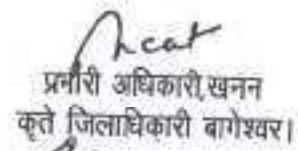 प्रभारी अधिकारी, खनन
कृते जिलाधिकारी बागेश्वर।